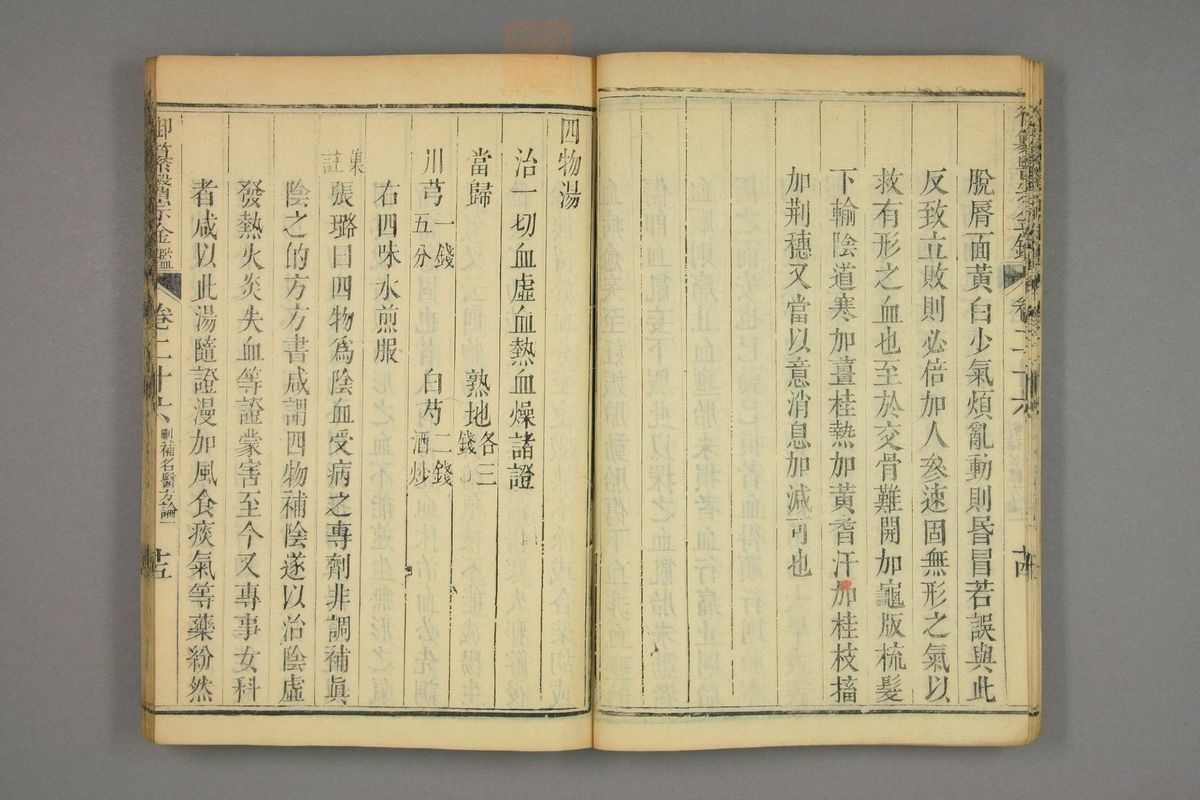 脫脣面黃白少氣煩亂動則昏冒若誤與此
反致立敗則必倍加人參速固無形之氣以
救有形之血也至於交骨難開加龜版梳髮
下輸陰道寒加薑桂熱加黃芩汗加桂枝搐
加荆穗又當以意消息加減可也
四物湯
治一切血虛血熱血燥諸證
當歸 熟地各三錢
川芎一錢五分 白芍二錢酒炒
右四味水煎服
集註張璐曰四物為陰血受病之專劑非調補眞
陰之的方方書咸謂四物補陰遂以治陰虛
發熱火炎失血等證蒙害至今又專事女科
者咸以此湯隨證漫加風食痰氣等藥紛然
御纂醫宗金鑑 卷二十六 刪補名醫方論一 廿五